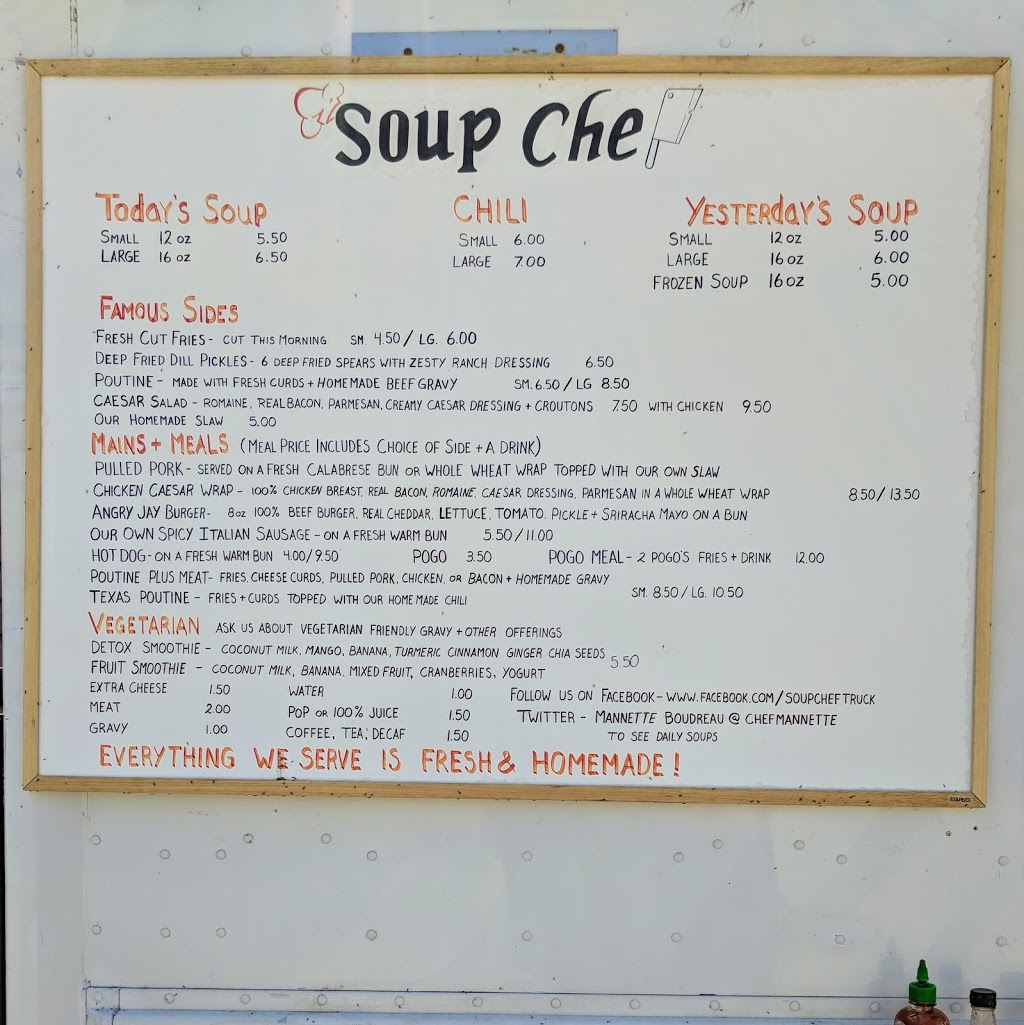 Soup Che
Today's Soup
SMALL 12 oz 5.50
LARGE 16 oz 6.50
CHILI
SMALL 6.00
LARGE 7.00
YESTERday's SOUP
SMALL 12 oz 5.00
LARGE 16 oz 6.00
FROZEN SOUP 16 oz 5.00
FAMOUS SIDES
FRESH CUT FRIES - CUT THIS MORNING SM. 4.50 / LG. 6.00
DEEP FRIED DILL PICKLES - 6 DEEP FRIED SPEARS WITH ZESTY RANCH DRESSING 6.50
POUTINE - MADE WITH FRESH CURDS + HOMEMADE BEEF GRAVY SM. 6.50 / LG 8.50
CAESAR SALAD - ROMAINE, REAL BACON, PARMESAN, CREAMY CAESAR DRESSING + CROUTONS 7.50 WITH CHICKEN 9.50
OUR HOMEMADE SLAW 5.00
MAINS + MEALS (MEAL PRICE INCLUDES CHOICE OF SIDE + A DRINK)
PULLED PORK - SERVED ON A FRESH CALABRESE BUN OR WHOLE WHEAT WRAP TOPPED WITH OUR OWN SLAW
CHICKEN CAESAR WRAP - 100% CHICKEN BREAST, REAL BACON, ROMAINE, CAESAR DRESSING, PARMESAN IN A WHOLE WHEAT WRAP 8.50 / 13.50
ANGRY JAY BURGER - 8oz 100% BEEF BURGER, REAL CHEDDAR, LETTUCE, TOMATO, PICKLE + SRIRACHA MAYO ON A BUN
OUR OWN SPICY ITALIAN SAUSAGE - ON A FRESH WARM BUN 5.50 / 11.00
HOT DOG - ON A FRESH WARM BUN 4.00 / 9.50 POGO 3.50 POGO MEAL - 2 POGO'S FRIES + DRINK 12.00
POUTINE PLUS MEAT - FRIES, CHEESE CURDS, PULLED PORK, CHICKEN, OR BACON + HOMEMADE GRAVY
SM. 8.50 / LG. 10.50
TEXAS POUTINE - FRIES + CURDS TOPPED WITH OUR HOMEMADE CHILI
VEGETARIAN ASK US ABOUT VEGETARIAN FRIENDLY GRAVY + OTHER OFFERINGS
DETOX SMOOTHIE - COCONUT MILK, MANGO, BANANA, TURMERIC CINNAMON GINGER CHIA SEEDS 5.50
FRUIT SMOOTHIE - COCONUT MILK, BANANA, MIXED FRUIT, CRANBERRIES, YOGURT
EXTRA CHEESE 1.50
MEAT 2.00
GRAVY 1.00
WATER 1.00
POP OR 100% JUICE 1.50
COFFEE, TEA, DECAF 1.50
FOLLOW US ON FACEBOOK - WWW.FACEBOOK.COM/SOUPCHEFTRUCK
TWITTER - MANNETTE BOUDREAU @ CHEFMANNETTE
TO SEE DAILY SOUPS
EVERYTHING WE SERVE IS FRESH & HOMEMADE!
STAPLES